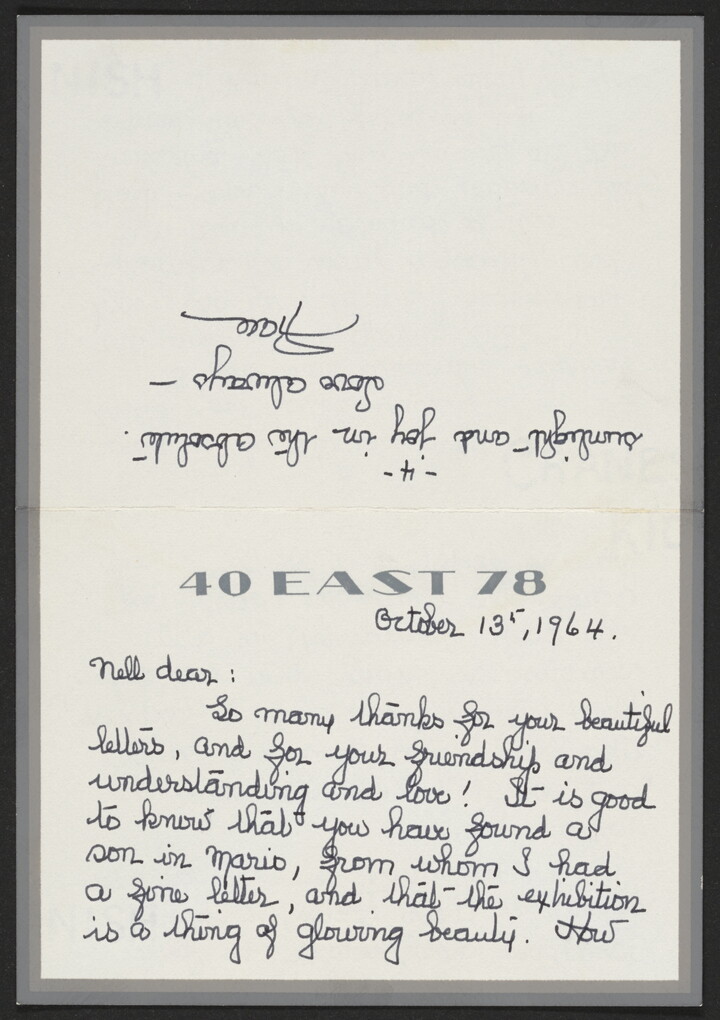 40 EAST 78
October 13th, 1964.
Nell dear:
So many thanks for your beautiful
letters, and for your friendship and
understanding and love! It is good
to know that you have found a
son in Mario, from whom I had
a fine letter, and that the exhibition
is a thing of glowing beauty. How
-4-
sunlight and joy in the absolute.
Love always -